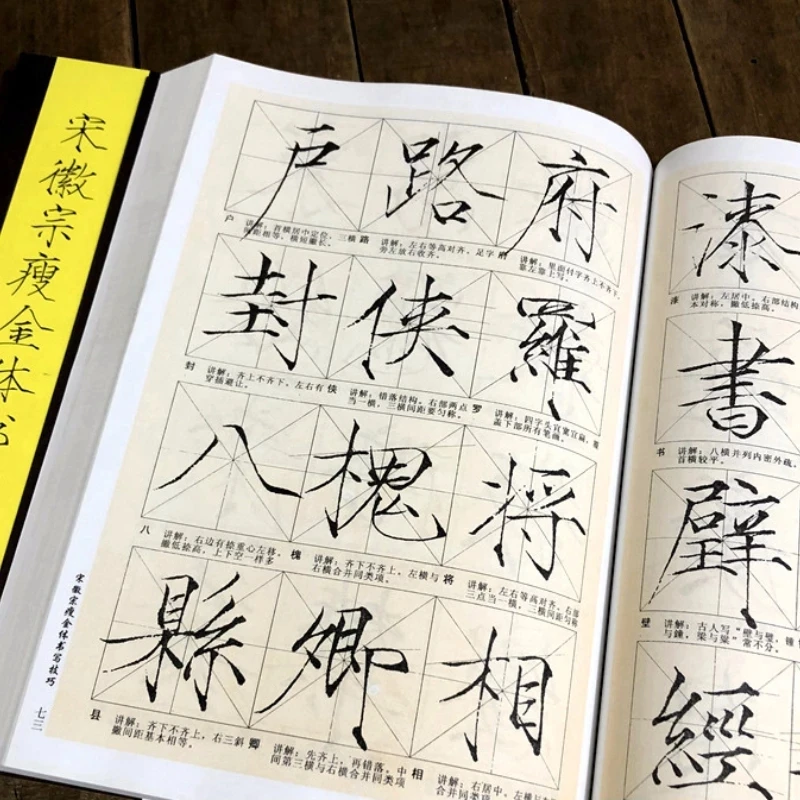 宋徽宗瘦金体书
户 路 府
户 讲解：首横居中定位，三横
间距相等，横短撇长。
路 讲解：左右等高对齐，足字
旁左放右收齐。
府 讲解：里面付字齐上不齐下，
靠左靠上写。
封 侠 羅
封 讲解：齐上不齐下，左右有
穿插避让。
侠 讲解：错落结构，右部两点
当一横，三横间距要匀称。
罗 讲解：四字头宜宽宜扁，覆
盖下部所有笔画。
八 槐 将
八 讲解：右边有捺重心左移，
撇低捺高，上下空一样多
槐 讲解：齐下不齐上，左横与
右横合并同类项。
将 讲解：左右等高对齐，右部
三点当一横，三横间距匀称
縣 卿 相
县 讲解：齐下不齐上，右三斜
撇间距基本相等。
卿 讲解：先齐上，再错落，中
间第三横与右横合并同类项
相 讲解：右居中，左横与
合并同类项
宋徽宗瘦金体书写技巧
七三
漆
漆 讲解：左居中，右部结构
本对称，撇低捺高。
書
书 讲解：八横并列内密外疏，
首横较平。
壁
壁 讲解：古人写“壁与璧，锺
与鐘，梁与粱”常不分。
經